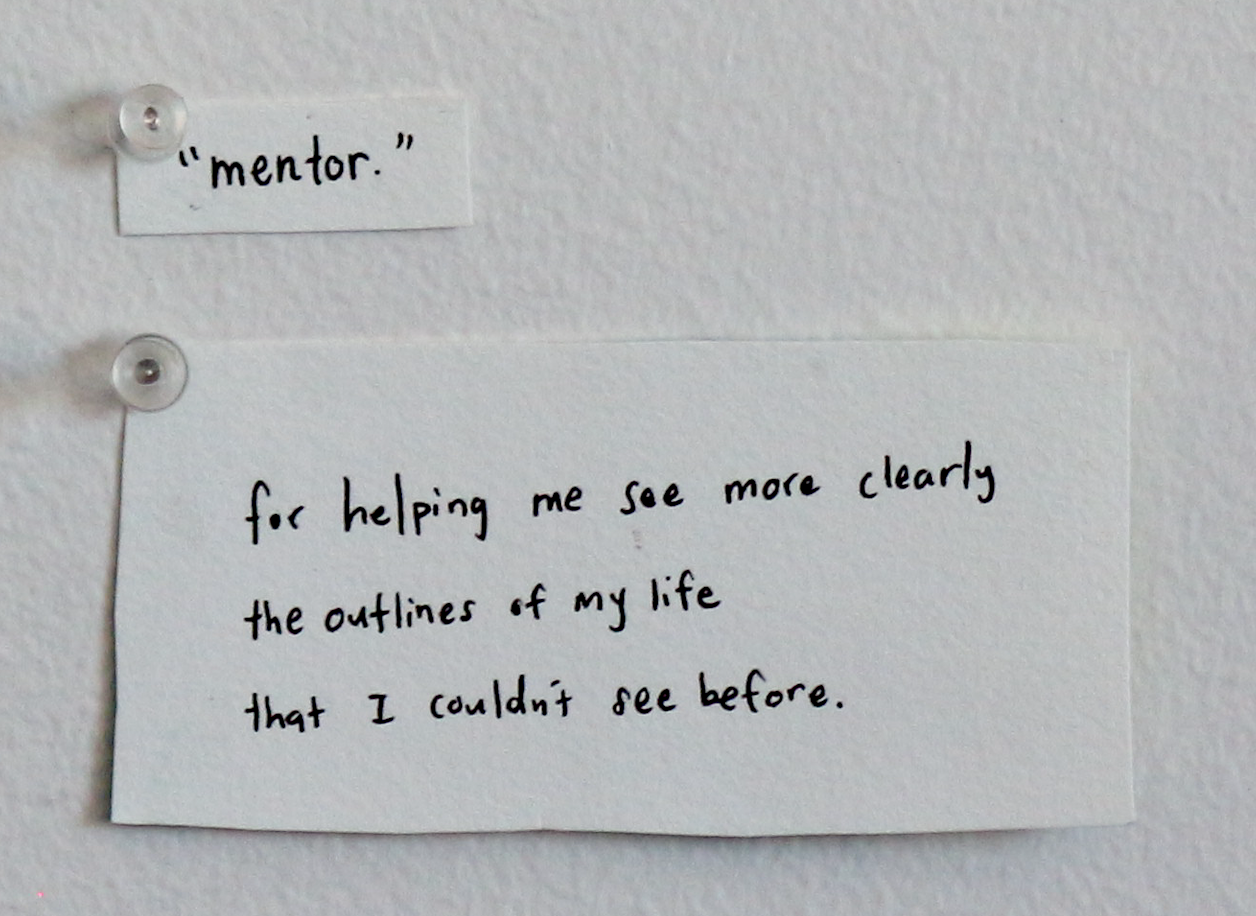 “mentor.”
for helping me see more clearly
the outlines of my life
that I couldn't see before.